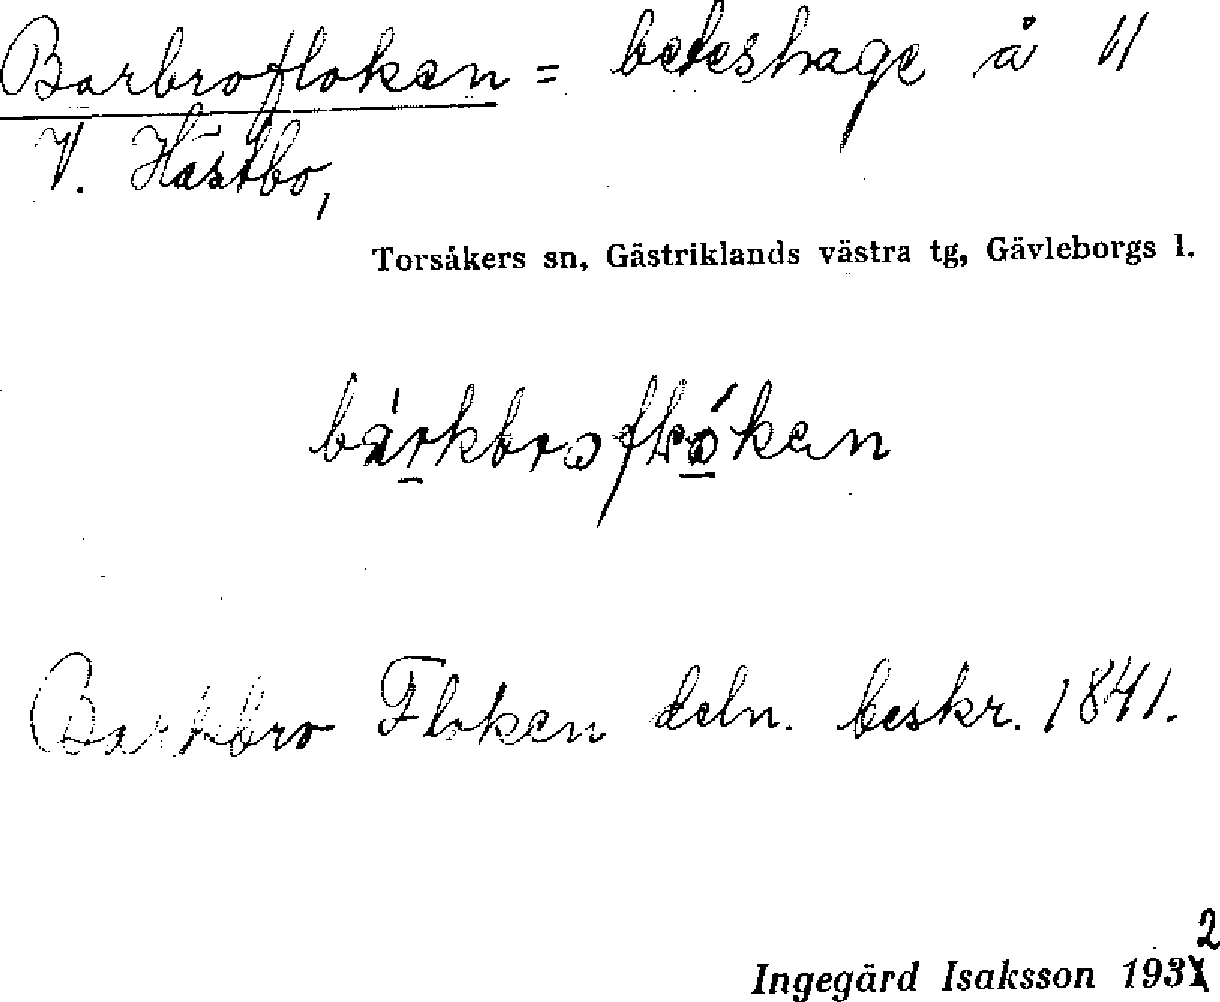 Barbrofloken = beteshage å 11
V. Hästbo,
Torsåkers sn, Gästriklands västra tg, Gävleborgs l.
Barkbro Floken deln. beskr. 1841.
Ingegärd Isaksson 1932